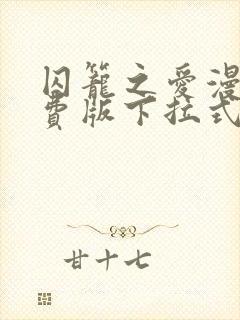 囚籠之愛漫
費版下拉式
甘十七